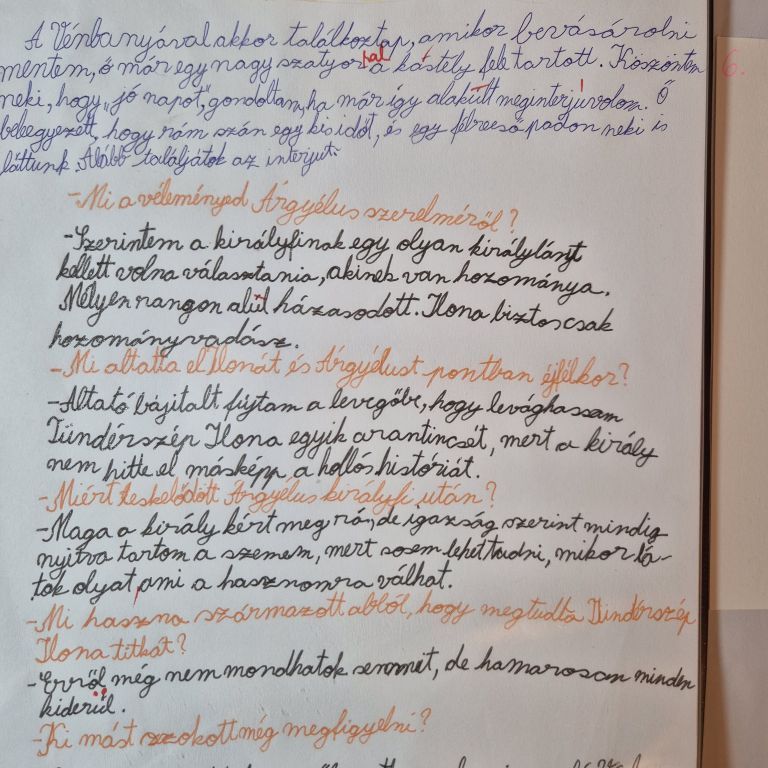 A Vénbanyával akkor találkoztam, amikor bevásárolni
mentem, ő már egy nagy szatyorral a kastély fele tartott. Köszöntem
neki, hogy „jó napot", gondoltam, ha már így alakult meginterjúvolom. Ő
beleegyezett, hogy rám szán egy kis időt, és egy félreeső padon neki is
láttunk. Alább találjátok az interjút:
-Mi a véleményed Árgyélus szerelméről?
-Szerintem a királyfinak egy olyan királylányt
kellett volna választania, akinek van hozománya.
Mélyen rangon alul házasodott. Ilona biztos csak
hozományvadász.
-Mi altatta el Ilonát és Árgyélust pontban éjfélkor?
-Altató bájitalt fújtam a levegőbe, hogy levághassam
Tündérszép Ilona egyik arantincsét, mert a király
nem hitte el másképp a hollós históriát.
-Miért leskelődött Árgyélus királyfi után?
-Maga a király kért meg rá, de igazság szerint mindig
nyitva tartom a szemem, mert sosem lehet tudni, mikor lá-
tok olyat, ami a hasznomra válhat.
-Mi haszna származott abból, hogy megtudta Tündérszép
Ilona titkát?
-Erről még nem mondhatok semmit, de hamarosan minden
kiderül.
-Ki mást szokott még megfigyelni?
6.